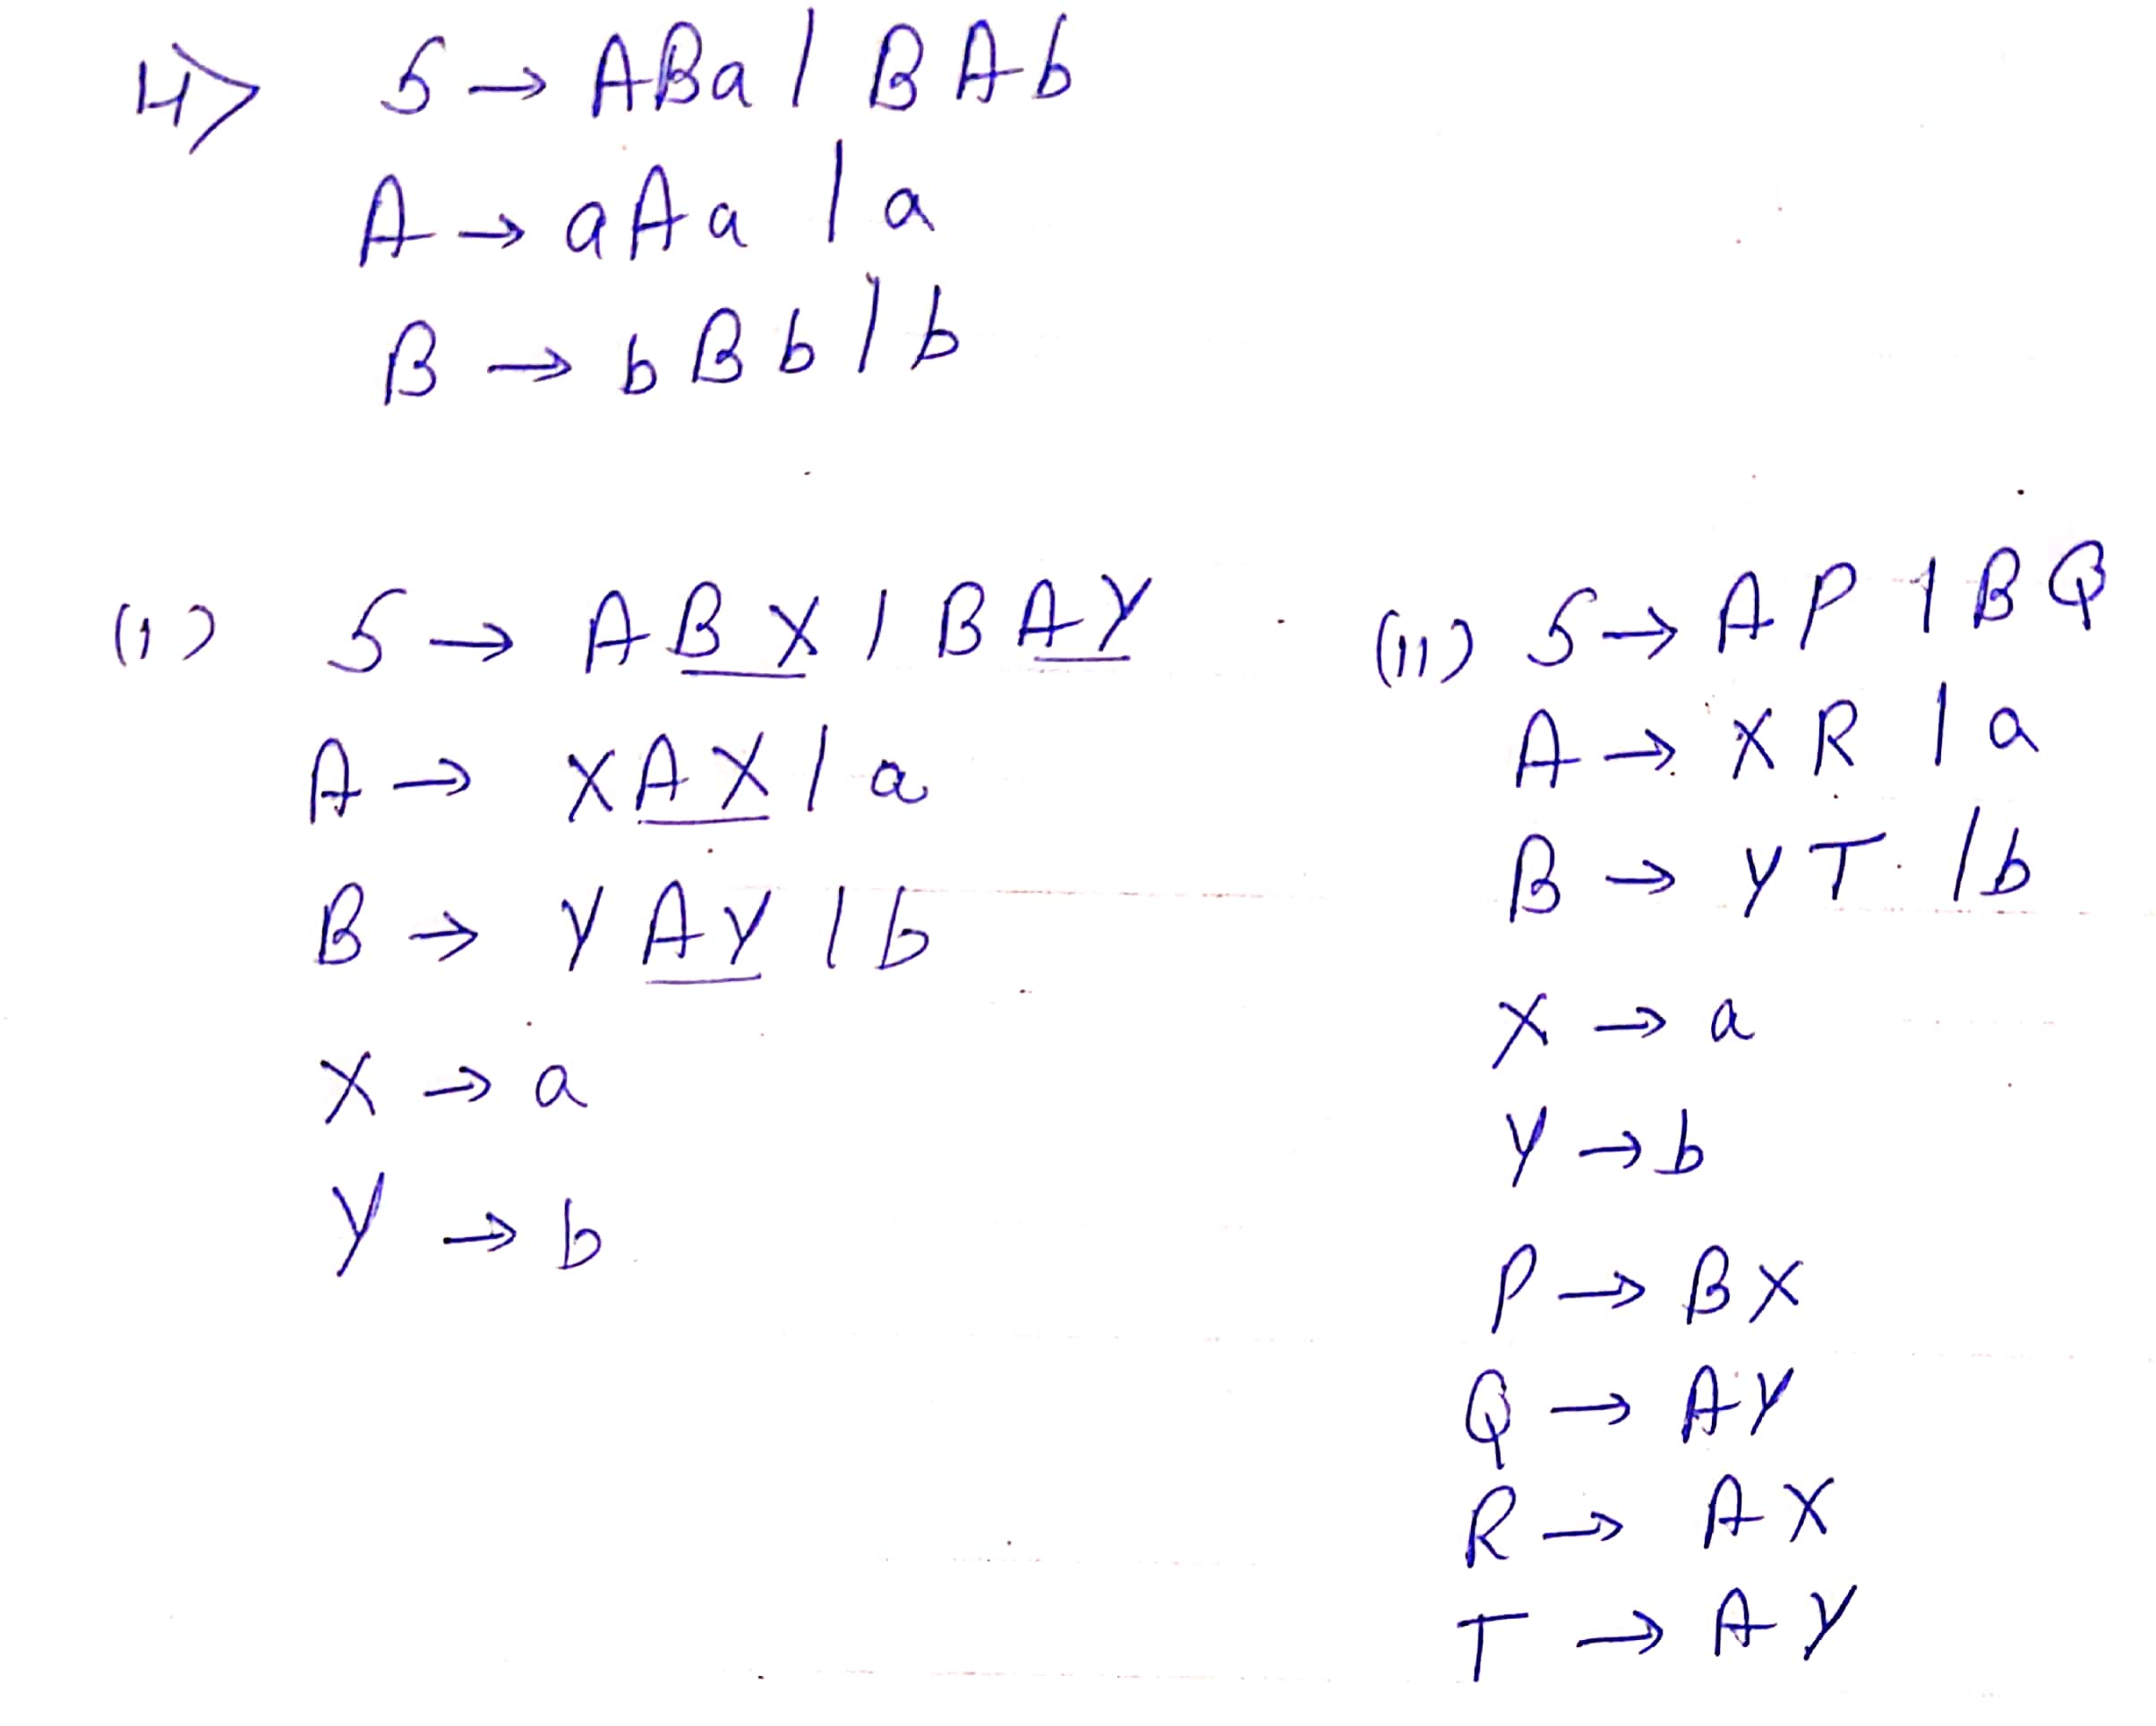 4> S → ABa | BAb
A → aAa | a
B → bBb | b
(i) S → ABX | BAY
A → XAX | a
B → YAY | b
X → a
Y → b
(ii) S → AP | BQ
A → XR | a
B → YT | b
X → a
Y → b
P → BX
Q → AY
R → AX
T → AY